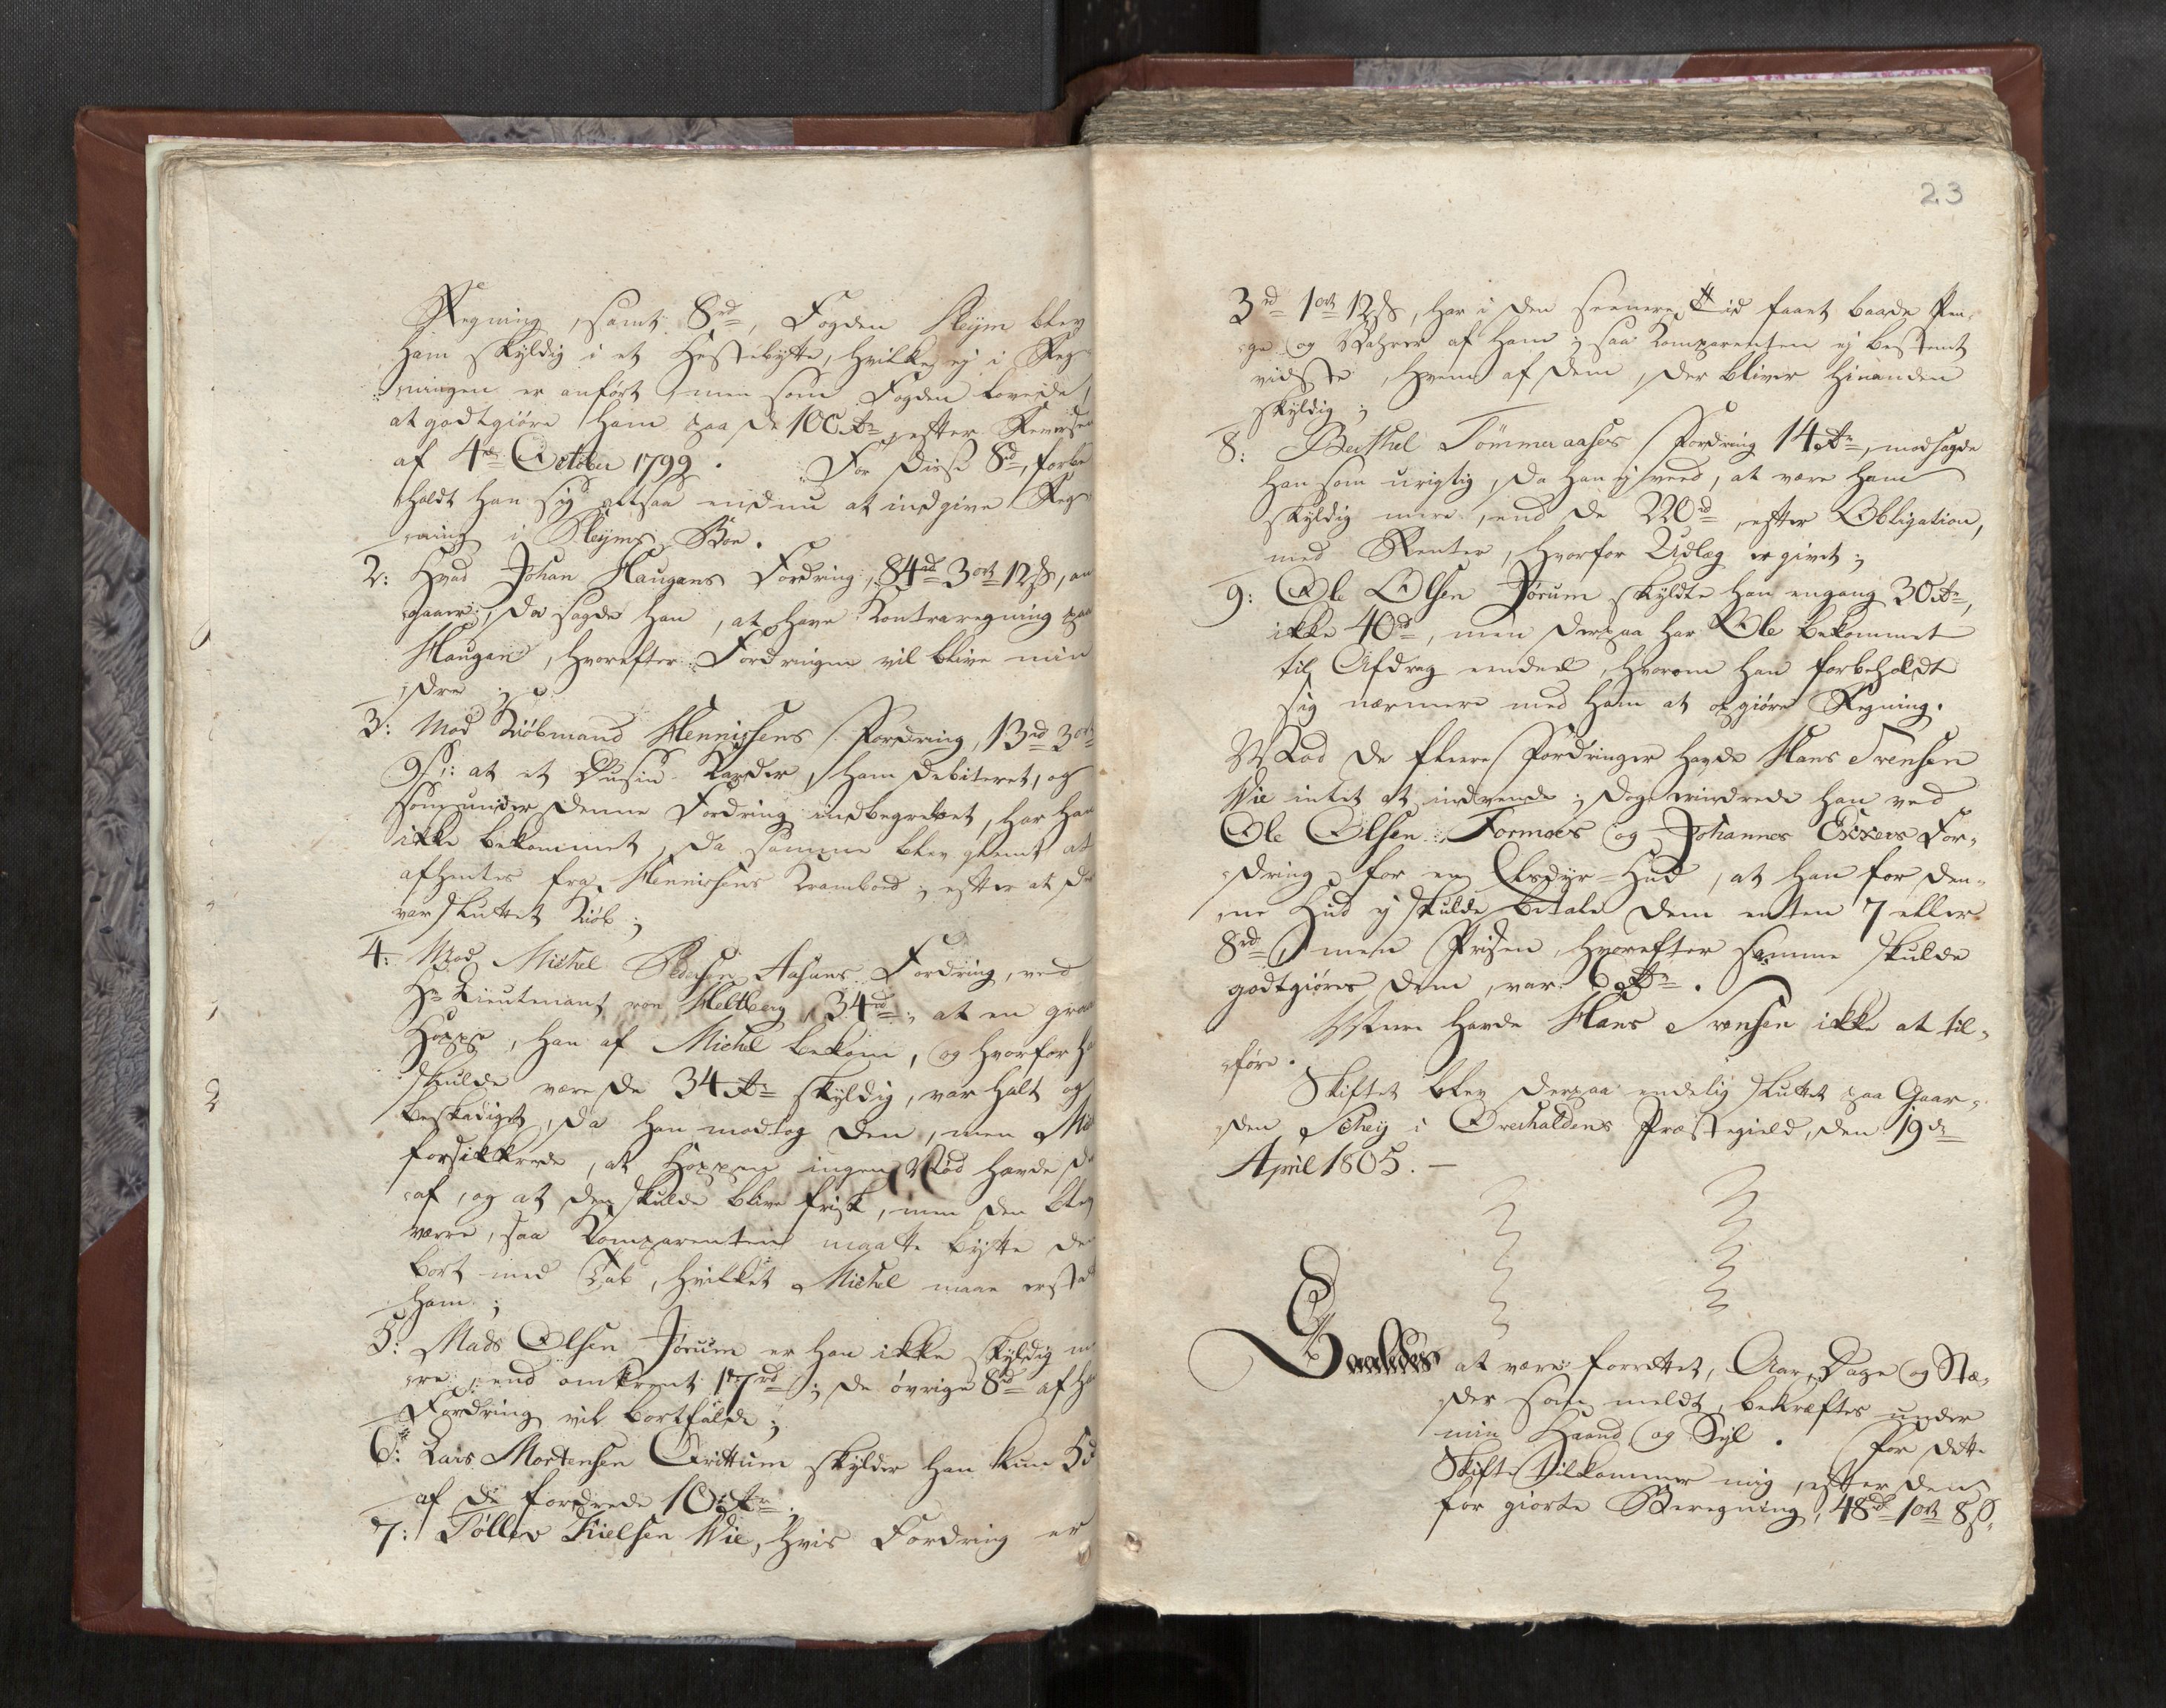 Regning, samt 8rd, Fogden Kleÿm blev
ham skÿldig i et Hestebÿtte, hvilke ej i Reg-
ningen er anført, men som Fogden lovede,
at godtgiøre ham paa de 100 rdr, efter Reverser
af 4de October 1799. For disse 8d, forbe
holdt han sig altsaa endnu at indgive Reg-
ning i Kleÿms Boe.
2: Hvad Johan Haugans Fordring, 84rd 3ort 12ß, an
gaaer, da sagde han, at have Kontraregning paa
Haugan, hvorefter Fordringen vil blive min
dre;
3: Mod Kiøbmand Hennissens Fordring, 13rd 3ort
9ß: at et Dusin Karder, ham debiteret, og
som under denne Fordring indbegrebet, har han
ikke bekommet, da samme blev glemt at
afhentes fra Hennissens Krambod, efter at de
var sluttet Kiøb;
4: Mod Michel Pedersen Aasans Fordring, ved
Hr Lieutenant von Heltberg, 34rd: at en graa
Hoppe, han af Michel bekom, og hvorfor ha
skulde være de 34 rdr skÿldig, var halt og
beskadiget, da han modtog den, men Mic
forsikkrede, at Hoppen ingen Nød havde de
af, og at den skulde blive frisk, men den blev
værre, saa Komparenten maatte bÿtte den
bort med Tab, hvilket Michel maae erstat
ham;
5: Mads Olsen Jørum er han ikke skÿldig m
ere, end omkrent 17rd; de øvrige 8d af ha
Fordring vil bortfalde;
6: Lars Mortensen Grittum skÿlder han kun 5d
af de fordrede 10 rdr;
7: Tøllev Kielsen Wie, hvis Fordring er
23
3rd 1ort 12ß, har i den seenere Tid faaet baade Pen-
ge og Wahrer af ham; saa Komparenten ej bestemt
vidste, hvem af dem, der bliver hinanden
skÿldig;
8: Berthel Tömmeraases Fordring 14 rdr, modsagde
han som urigtig, da han ej veed, at være ham
skÿldig mere, end de 220rd, efter Obligation,
med Renter, hvorfor Udlæg er givet;
9: Ole Olsen Jørum skÿldte han engang 30 rdr,
ikke 40rd, men derpaa har Ole bekommet
til Afdrag eendeel, hvorom han forbeholdt
sig nærmere med ham at opgiøre Regning.
Mod de fleere Fordringer havde Hans Svensen
Wie intet at indvende; dog erindrede han ved
Ole Olsen Formoes og Johannes Ekkers For-
dring, for en Elsdÿr-Hud, at han for den-
ne Hud ej skulde betale dem enten 7 eller
8rd, men Prisen, hvorefter samme skulde
godtgiøres dem, var 6 rdr.
Mere havde Hans Svensen ikke at til-
føre.
Skiftet blev derpaa endelig sluttet paa Gaar-
den Schey i Overhaldens Præstegield, den 19de
April 1805. —
Saaledes at være forrettet, Aar, Dage og Stæ-
der som meldt, bekræftes under
min Haand og Sejl. For dette
Skifte tilkommer mig, efter den
for giorte Beregning, 48rd 1ort 8ß.